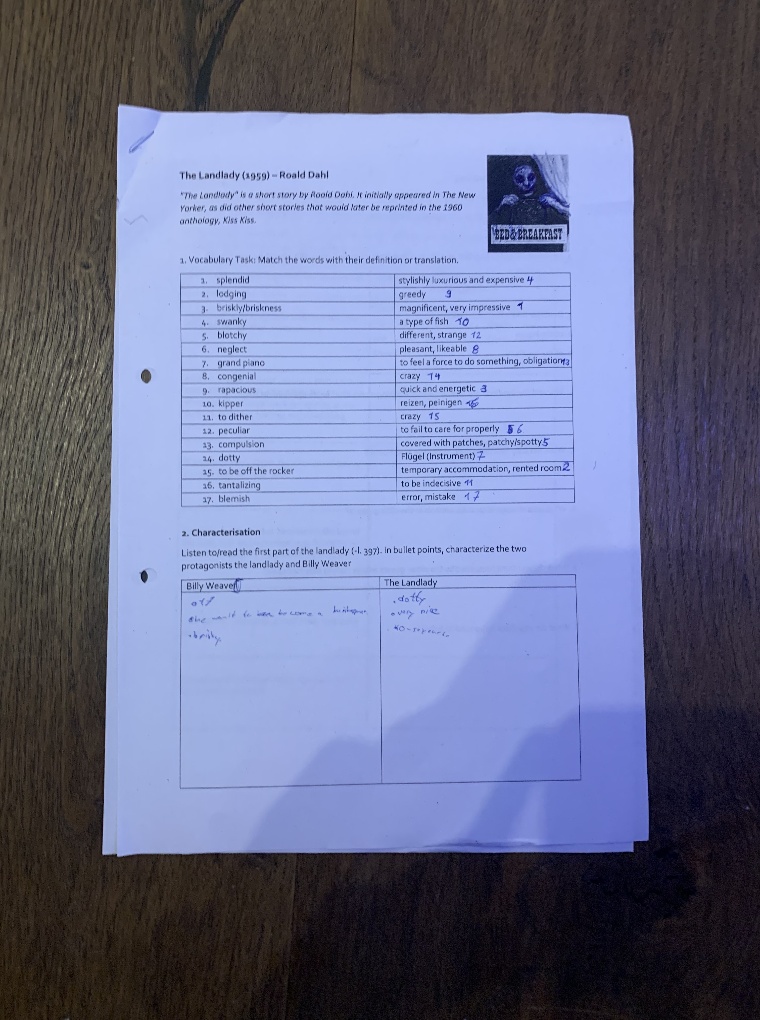 The Landlady (1959) – Roald Dahl
"The Landlady" is a short story by Roald Dahl. It initially appeared in The New
Yorker, as did other short stories that would later be reprinted in the 1960
anthology, Kiss Kiss.
BED & BREAKFAST
1. Vocabulary Task: Match the words with their definition or translation.
1. splendid stylishly luxurious and expensive 4
2. lodging greedy 9
3. briskly/briskness magnificent, very impressive 1
4. swanky a type of fish 10
5. blotchy different, strange 12
6. neglect pleasant, likeable 8
7. grand piano to feel a force to do something, obligation 13
8. congenial crazy 14
9. rapacious quick and energetic 3
10. kipper reizen, peinigen 16
11. to dither crazy 15
12. peculiar to fail to care for properly 6
13. compulsion covered with patches, patchy/spotty 5
14. dotty Flügel (Instrument) 7
15. to be off the rocker temporary accommodation, rented room 2
16. tantalizing to be indecisive 11
17. blemish error, mistake 17
2. Characterisation
Listen to/read the first part of the landlady (-l. 397). In bullet points, characterize the two
protagonists the landlady and Billy Weaver
Billy Weaver The Landlady
· dotty
to become a · very nice